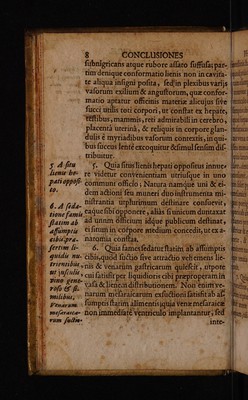 8 CONCLUSIONES
subnigricans atque rubore assato suffusa; par-
tim denique conformatio lienis non in cavita-
te aliqua insigni posita, sed in plexibus varijs
vasorum exilium & angustorum, quæ confor-
matio aptatur officinis materiæ alicujus sive
succi utilis toti corpori, ut constat ex hepate,
testibus, mammis, reti admirabili in cerebro,
placenta uterinâ, & reliquis in corpore glan-
dulis è myriadibus vasorum contextis, in qui-
bus succus lentè excoquitur & simul sensim dis-
tribuitur.
5. A situ
lienis he-
pati opposi-
to.
5. Quia situs lienis hepati oppositus innue-
re videtur convenientiam utriusque in uno
communi officio; Natura namque uni & ei-
dem actioni seu muneri duo instrumenta mi-
nistrantia utplurimum destinare consuevit,
eaque sibi opponere, aliàs si unicum duntaxat
ad unum officium idque publicum destinat,
ei situm in corpore medium concedit, ut ex a-
natomia constat.
6. A seda-
tione famis
statim ab
assumptis
cibis præ-
sertim li-
quidis nu-
trientibus,
ut jusculis,
vino gene-
roso & si-
milibus;
Venarum
mesaraica-
rum suctio-
6. Quia fames sedatur statim ab assumptis
cibis, quod suctio sive attractio vehemens lie-
nis & venarum gastricarum quiescit, utpote
cui satisfit per liquidioris cibi præproperam in
vasa & lienem distributionem. Non enim ve-
narum mesaraicarum exsuctioni satisfit ab as-
sumptis statim alimentis quia venæ mesaraicæ
non immediatè ventriculo implantantur, sed
inte-